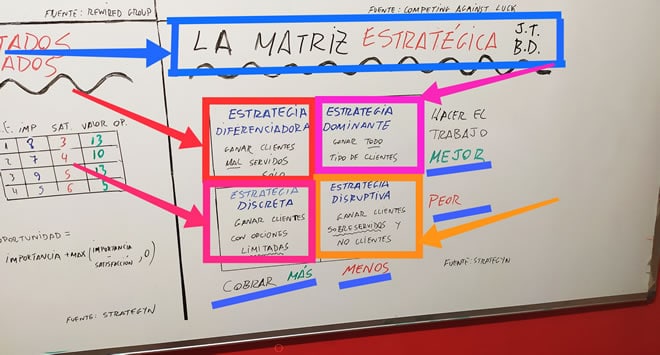 FUENTE: REWIRED GROUP
TADOS
ADOS
IMP SAT. VALOR OP.
1 8 3 13
2 7 4 10
3 9 5 13
4 5 6 5
OPORTUNIDAD =
IMPORTANCIA + MAX (IMPORTANCIA - SATISFACCIÓN, 0)
FUENTE: STRATEGYN
FUENTE: COMPETING AGAINST LUCK
LA MATRIZ ESTRATÉGICA J.T.
B.D.
ESTRATEGIA
DIFERENCIADORA
GANAR CLIENTES
MAL SERVIDOS
SÓLO
ESTRATEGIA
DOMINANTE
GANAR TODO
TIPO DE CLIENTES
HACER EL
TRABAJO
MEJOR
ESTRATEGIA
DISCRETA
GANAR CLIENTES
CON OPCIONES
LIMITADAS
ESTRATEGIA
DISRUPTIVA
GANAR CLIENTES
SOBRESERVIDOS Y
NO CLIENTES
PEOR
COBRAR MÁS MENOS
FUENTE: STRATEGYN